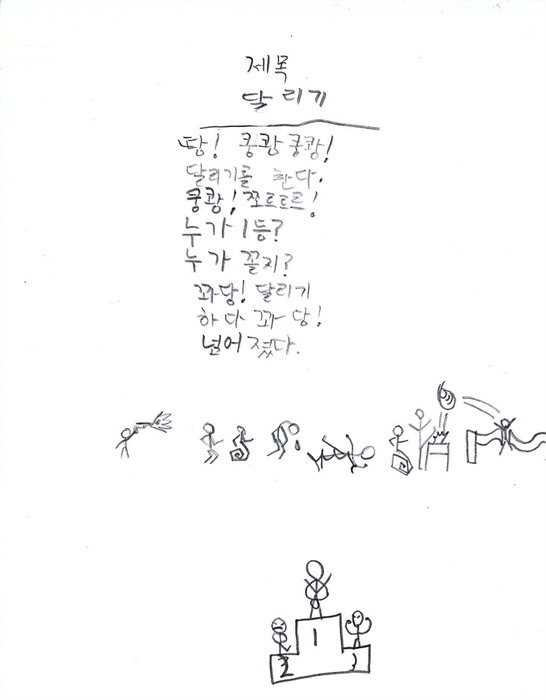 제목
달리기
땅! 쿵쾅쿵쾅!
달리기를 한다.
쿵쾅! 쪼르르르!
누가 1등?
누가 꼴지?
꽈당! 달리기
하다 꽈당!
넘어졌다.
1
2
3